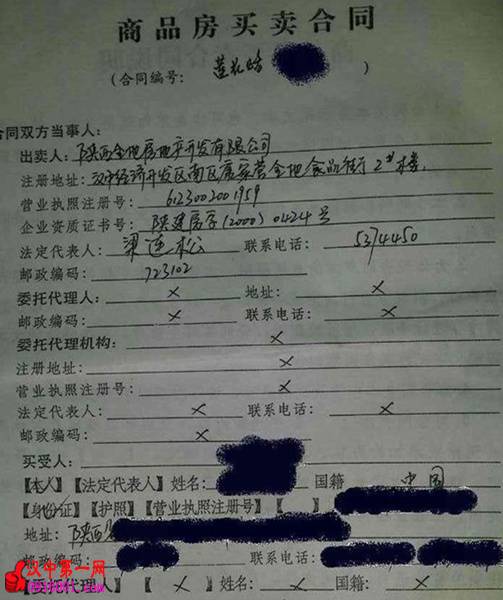 商品房买卖合同
(合同编号: 莲花
)
合同双方当事人:
出卖人: 陕西金地房地产开发有限公司
注册地址: 汉中经济开发区南区唐家营金地食品街2#楼
营业执照注册号: 6123002001959
企业资质证书号: 陕建房字(2000)0424号
法定代表人: 梁连松 联系电话: 5374450
邮政编码: 723102
委托代理人: × 地址: ×
邮政编码: × 联系电话: ×
委托代理机构: ×
注册地址: ×
营业执照注册号: ×
法定代表人: × 联系电话: ×
邮政编码: ×
买受人:
【本人】【法定代表人】姓名: 国籍 中国
【身份证】【护照】【营业执照注册号】【 】
地址: 陕西省
邮政编码: 联系电话:
【委托代理人】【 × 】姓名: × 国籍: ×
汉中第一网